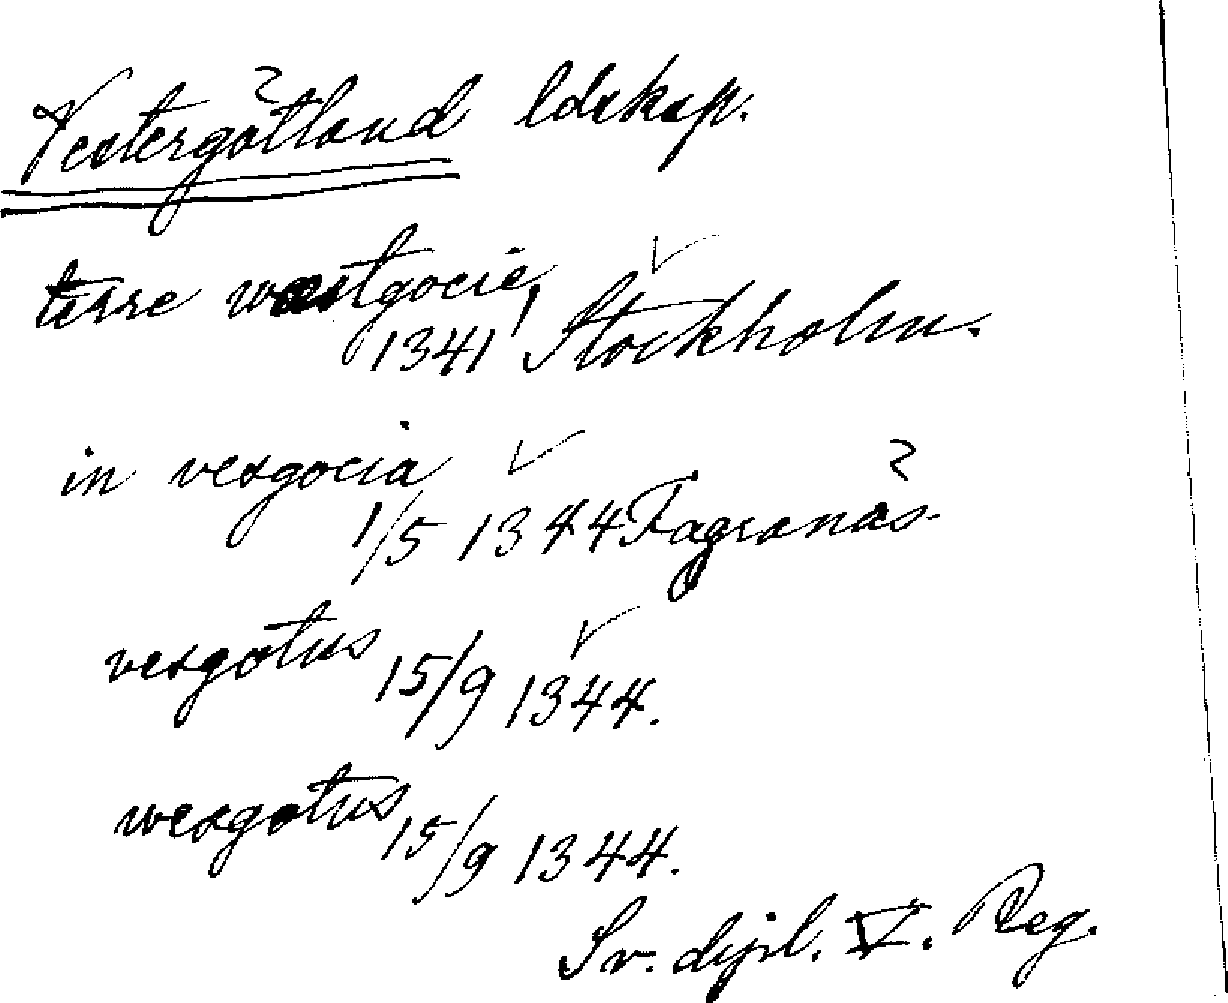 Vestergötland ldskap.
terre wæstgocie 1341 Stockholm.
in vesgocia
1/5 1344 Fagranäs
vesgotus 15/9 1344.
wesgotus 15/9 1344.
Sv. dipl. V. Reg.